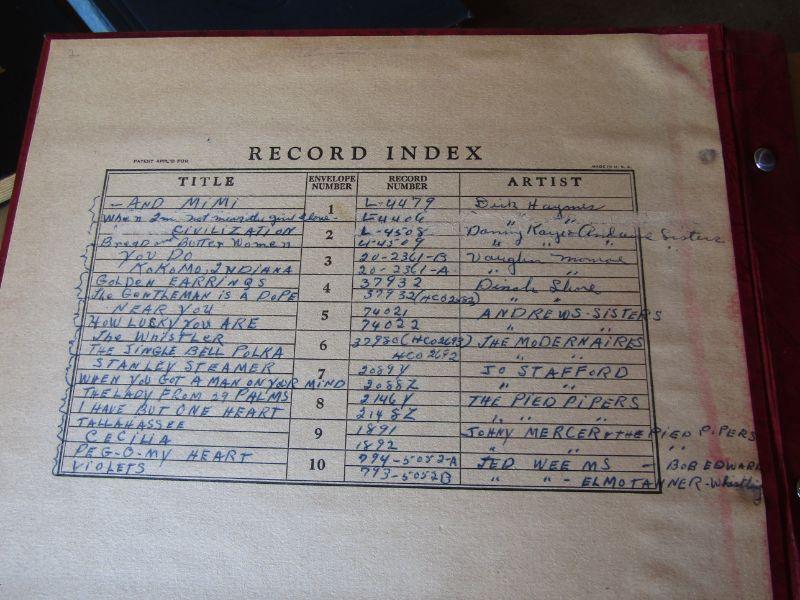 2
PATENT APPL'D FOR RECORD INDEX MADE IN U.S.A.
TITLE ENVELOPE NUMBER RECORD NUMBER ARTIST
- AND MIMI 1 L-4479 Dick Haymes
When I'm not near the girl I love - L-4406 " "
CIVILIZATION 2 L-4508 Danny Kaye & Andrews Sisters
Bread and Butter Women 4-4509 " "
YOU DO 3 20-2361-B Vaughn Monroe
KOKOMO, INDIANA 20-2361-A " "
GOLDEN EARRINGS 4 37932 Dinah Shore
The GENTLEMAN IS A DOPE 37932 " "
NEAR YOU 5 74021 ANDREWS-SISTERS
HOW LUCKY YOU ARE 74022 "
The WHISTLER 6 37980 (HCO2693) THE MODERNAIRES
THE JINGLE BELL POLKA HCO2692 " "
STANLEY STEAMER 7 2089Y JO STAFFORD
WHEN YOU GOT A MAN ON YOUR MIND 2088Z " "
THE LADY FROM 29 PALMS 8 2146Y THE PIED PIPERS
I HAVE BUT ONE HEART 2148Z " "
TALLAHASSEE 9 1891 JOHNY MERCER & THE PIED PIPERS
CECILIA 1892 " "
PEG-O-MY HEART 10 794-5052-A TED WEEMS - BOB EDWARD
VIOLETS 793-5052B " " - ELMO TANNER - Whistling